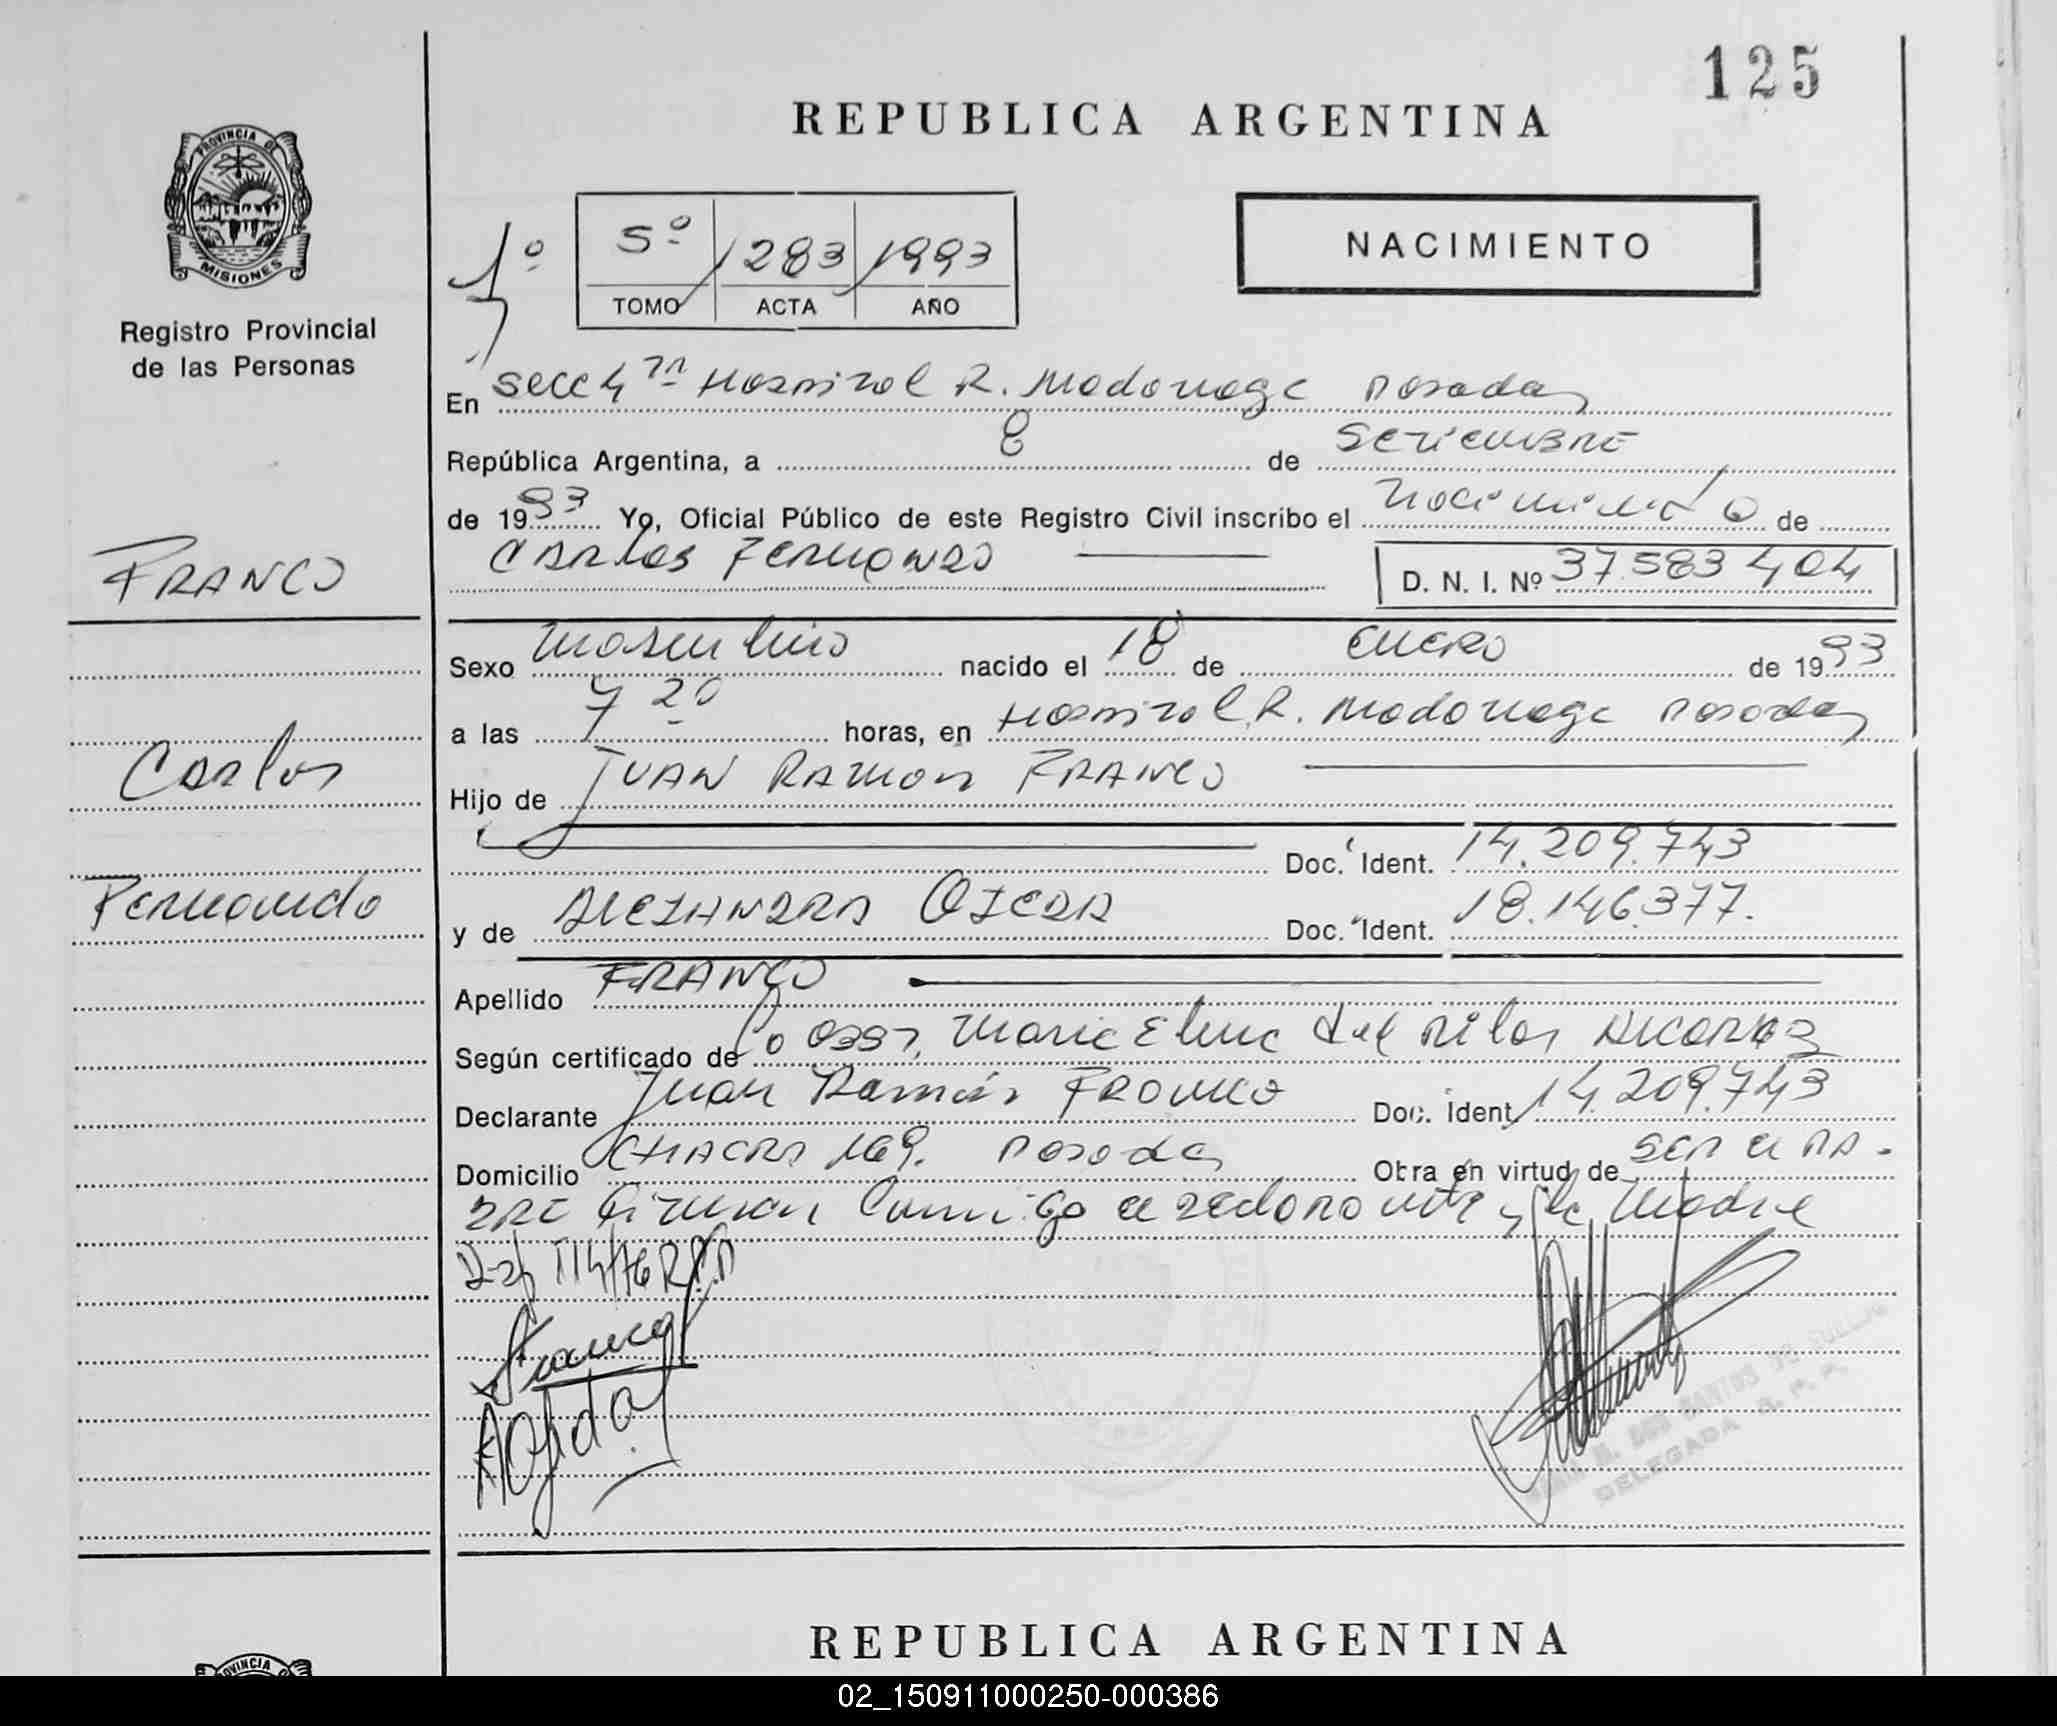 125
REPUBLICA ARGENTINA
PROVINCIA DE
MISIONES
Registro Provincial
de las Personas
1º
5º 1283 1993
TOMO ACTA AÑO
NACIMIENTO
En Secc 4ta Hospital R. Madariaga Posadas
República Argentina, a 8 de Setiembre
de 1993 Yo, Oficial Público de este Registro Civil inscribo el nacimiento de
Carlos Fernando
D. N. I. Nº 37583404
FRANCO
Carlos
Fernando
Sexo masculino nacido el 18 de Enero de 1993
a las 7 20 horas, en Hospital R. Madariaga Posadas
Hijo de JUAN RAMON FRANCO
Doc. Ident. 14.209.743
y de ALEJANDRA OJEDA Doc. Ident. 18.146.377.
Apellido FRANCO
Según certificado de Maria Elena del Pilar
Declarante Juan Ramón FRANCO Doc. Ident 14.209.743
Domicilio CHACRA 169. Posadas Obra en virtud de ser el pa-
dre Firman Conmigo el declarante y la madre
Franco
AOjeda
DOS SANTOS DE
DELEGADA R. P. P.
REPUBLICA ARGENTINA
PROVINCIA DE
02_150911000250-000386